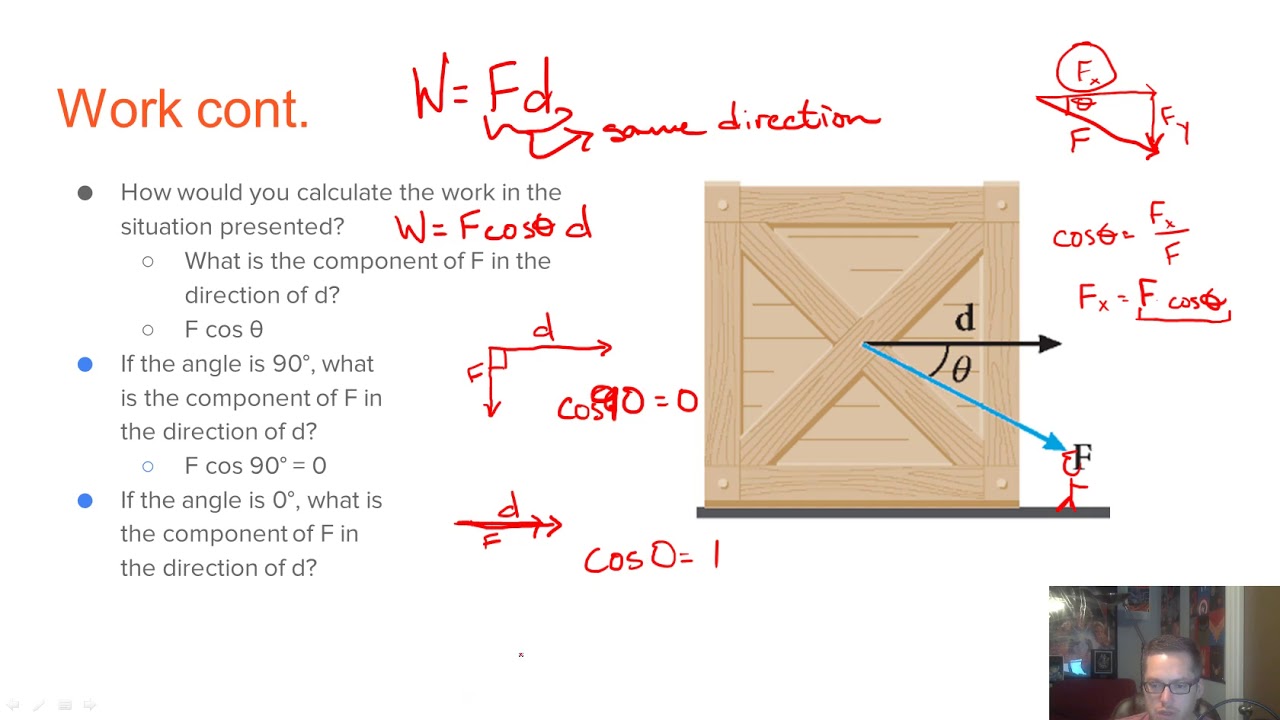 Work cont.
W = Fd
same direction
How would you calculate the work in the
situation presented?
W = F cosθ d
What is the component of F in the
direction of d?
F cos θ
If the angle is 90°, what
is the component of F in
the direction of d?
F cos 90° = 0
If the angle is 0°, what is
the component of F in
the direction of d?
d
F
cos 90 = 0
d
F
cos 0 = 1
Fx
θ
F
Fy
cosθ = Fx/F
Fx = F cosθ
d
θ
F